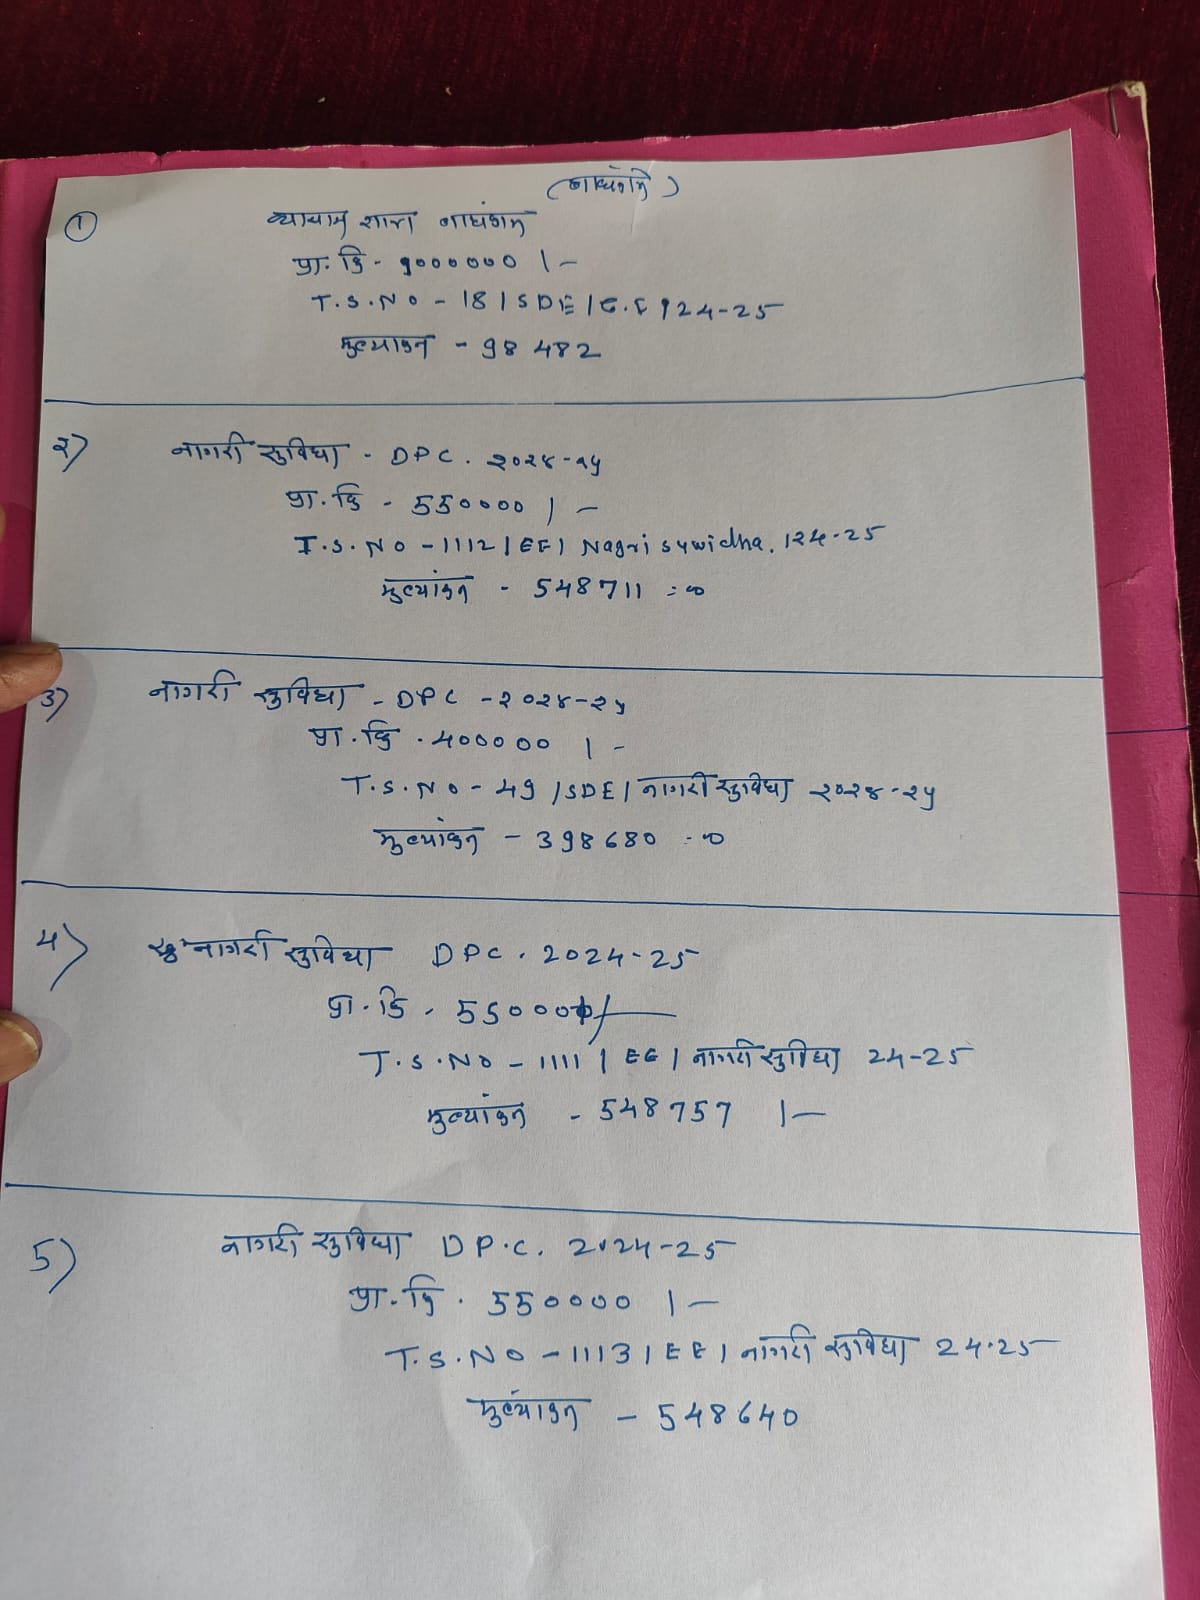 (नाघंगाव)
१
व्यायाम शाळा नाघंगाव
प्रा. कि - १०००००० /-
T.S.NO - 18/SDE/C.F/24-25
मुल्यांकन - 98482
२)
नागरी सुविधा - DPC. २०२४-२५
प्रा. कि - 550000 /-
T.S.NO - 1112/EE/ Nagri suwidha. /24-25
मुल्यांकन - 548711 =00
3)
नागरी सुविधा - DPC - २०२४-२५
प्रा. कि. 400000 /-
T.S.NO - 49/SDE/ नागरी सुविधा २०२४-२५
मुल्यांकन - 398680 =00
4)
नागरी सुविधा DPC. 2024-25
प्रा. कि. 550000/-
T.S.NO - 1111/EE/ नागरी सुविधा 24-25
मुल्यांकन - 548757 /-
5)
नागरी सुविधा D.P.C. 2024-25
प्रा. कि. 550000 /-
T.S.NO - 1113/EE/ नागरी सुविधा 24-25
मुल्यांकन - 548640